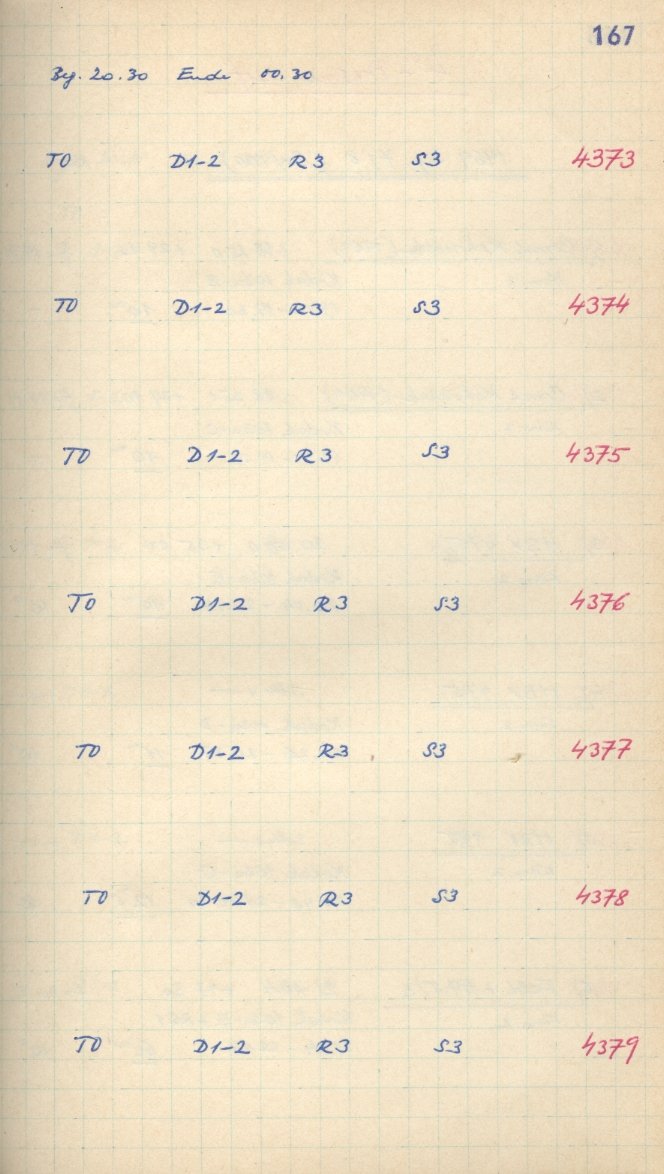 167
Bg. 20.30 Ende 00.30
T0 D1-2 R3 S3 4373
T0 D1-2 R3 S3 4374
T0 D1-2 R3 S3 4375
T0 D1-2 R3 S3 4376
T0 D1-2 R3 S3 4377
T0 D1-2 R3 S3 4378
T0 D1-2 R3 S3 4379